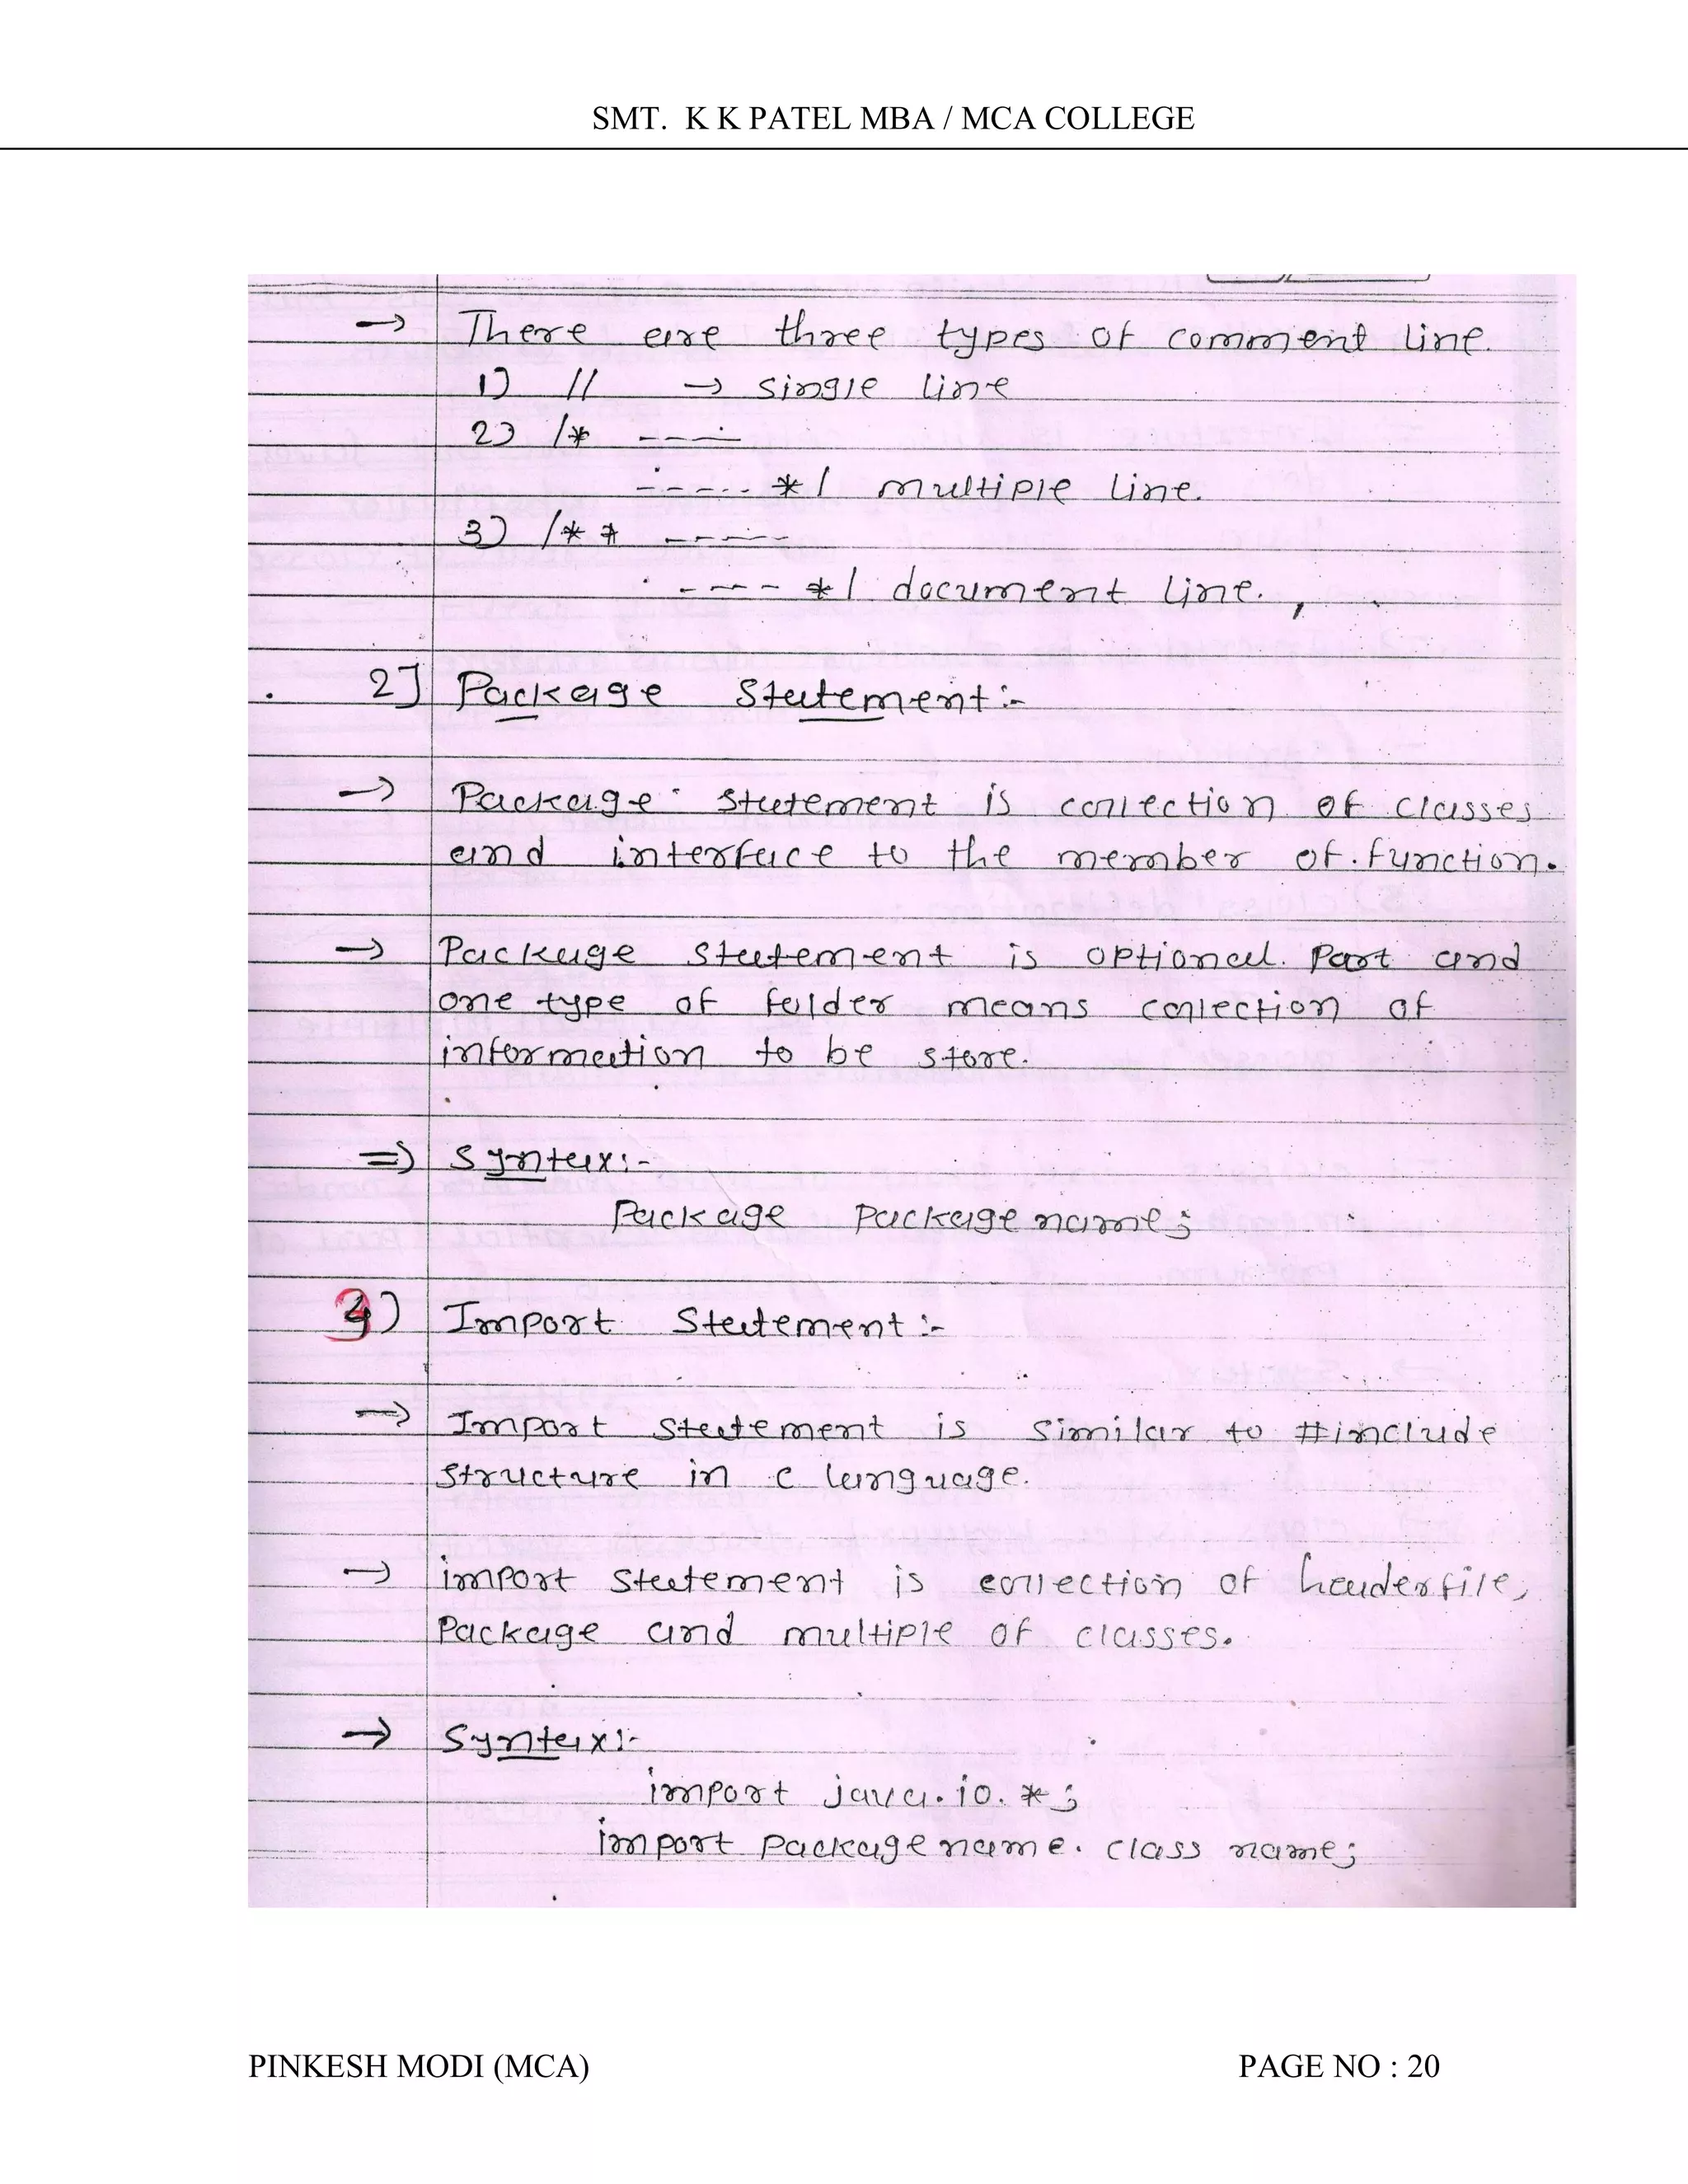 SMT. K K PATEL MBA / MCA COLLEGE
→ There are three types of comment line.
1) // → single line
2) /* ----
----- */ multiple line.
3) /** -----
---- */ document line.
2] Package Statement:-
→ Package statement is collection of classes
and interface to the member of function.
→ Package statement is optional Part and
one type of folder means collection of
information to be store.
⇒ Syntax:-
Package Packagename;
3) Import Statement:-
→ Import statement is similar to #include
structure in c language.
→ import statement is collection of headerfile,
Package and multiple of classes.
→ Syntax:-
import java.io.*;
import packagename.class name;
PINKESH MODI (MCA) PAGE NO : 20